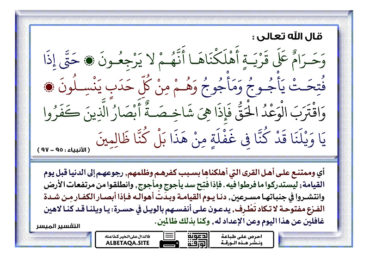 قال الله تعالى :
وَحَرَامٌ عَلَى قَرْيَةٍ أَهْلَكْنَاهَا أَنَّهُمْ لَا يَرْجِعُونَ ۞ حَتَّى إِذَا
فُتِحَتْ يَأْجُوجُ وَمَأْجُوجُ وَهُمْ مِنْ كُلِّ حَدَبٍ يَنْسِلُونَ ۞
وَاقْتَرَبَ الْوَعْدُ الْحَقُّ فَإِذَا هِيَ شَاخِصَةٌ أَبْصَارُ الَّذِينَ كَفَرُوا
يَا وَيْلَنَا قَدْ كُنَّا فِي غَفْلَةٍ مِنْ هَذَا بَلْ كُنَّا ظَالِمِينَ
( الأنبياء : ٩٥ - ٩٧ )
أي وممتنع على أهل القرى التي أهلكناها بسبب كفرهم وظلمهم، رجوعهم إلى الدنيا قبل يوم
القيامة؛ ليستدركوا ما فرطوا فيه . فإذا فُتح سد يأجوج ومأجوج، وانطلقوا من مرتفعات الأرض
وانتشروا في جنباتها مسرعين، دنا يوم القيامة وبدت أهواله فإذا أبصار الكفار مِن شدة
الفزع مفتوحة لا تكاد تطرف، يدعون على أنفسهم بالويل في حسرة: يا ويلنا قد كنا لاهين
غافلين عن هذا اليوم وعن الإعداد له، وكنا بذلك ظالمين.
التفسير الميسر
احرص على طباعة
ونشر هذه الورقة
الدال على الخير كفاعله
ALBETAQA.SITE